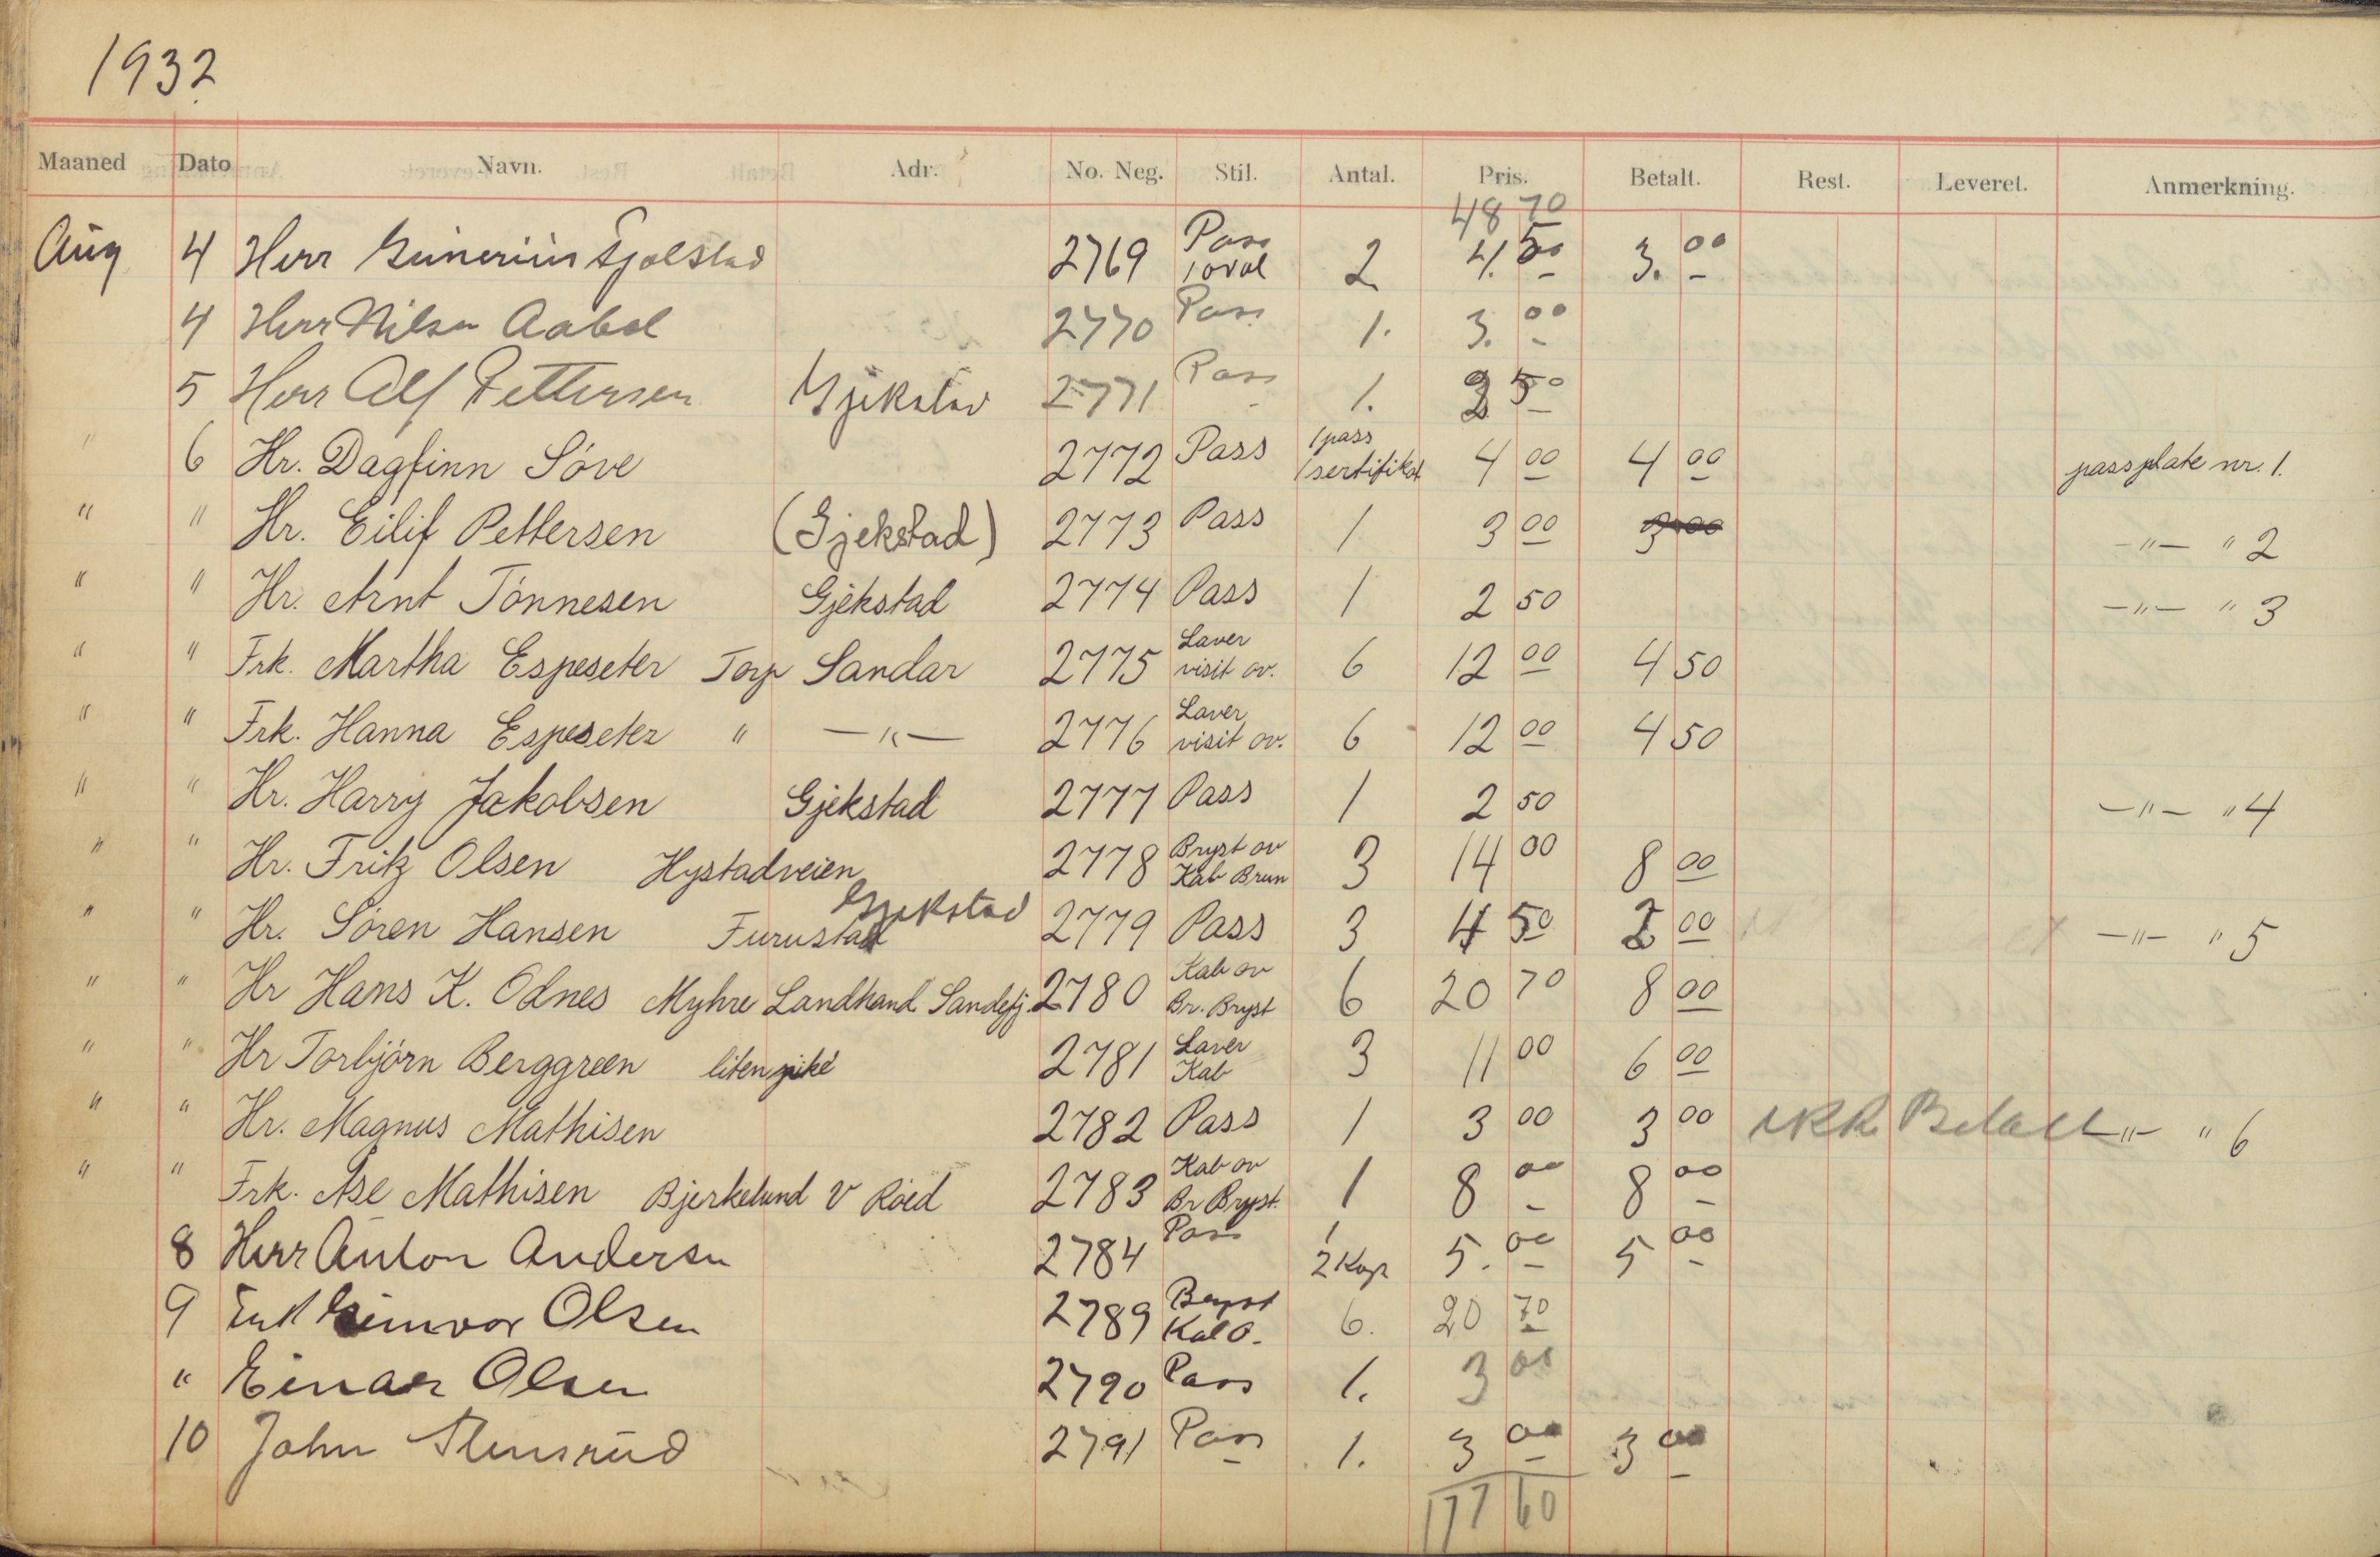 1932
Maaned Dato Navn. Adr. No. Neg. Stil. Antal. Pris. Betalt. Rest. Leveret. Anmerkning.
48 70
Aug 4 Herr 2769 Pass 1 oval 2 4.50 3.00
4 Herr Nilsen Aabol 2770 Pass 1. 3.00
5 Herr Alf Pettersen Gjekstad 2771 Pass 1. 2 50
" 6 Hr. Dagfinn Söve 2772 Pass 1 pass 1 sertifikat 4 00 4 00 passplate nr. 1.
" " Hr. Eilif Pettersen (Gjekstad) 2773 Pass 1 3 00 3 00 -"- " 2
" " Hr. Arnt Tönnesen Gjekstad 2774 Pass 1 2 50 -"- " 3
" " Frk. Martha Espeseter Torp Sandar 2775 Laver visit ov. 6 12 00 4 50
" " Frk. Hanna Espeseter " -"- 2776 Laver visit ov. 6 12 00 4 50
" " Hr. Harry Jakobsen Gjekstad 2777 Pass 1 2 50 -"- " 4
" " Hr. Fritz Olsen Hystadveien 2778 Bryst ov Kab Brun 3 14 00 8 00
" " Hr. Sören Hansen Furustad Gjekstad 2779 Pass 3 4 50 2 00 -"- " 5
" " Hr Hans K. Odnes Myhre Landhand. Sandefj. 2780 Kab ov Br. Bryst 6 20 70 8 00
" " Hr Torbjörn Berggreen liten pike 2781 Laver Kab 3 11 00 6 00
" " Hr. Magnus Mathisen 2782 Pass 1 3 00 3 00 ikke Betalt -"- " 6
" " Frk. Åse Mathisen Bjerkelund v Röed 2783 Kab ov Br Bryst. 1 8 00 8 00
8 Herr Anton Andersen 2784 Pass 1 2 Kop 5.00 5 00
9 Frk Gunvor Olsen 2789 Bryst Kab O. 6. 20 70
" Einar Olsen 2790 Pass 1. 3 00
10 John Stensrud 2791 Pass 1. 3 00 3 00
177 60